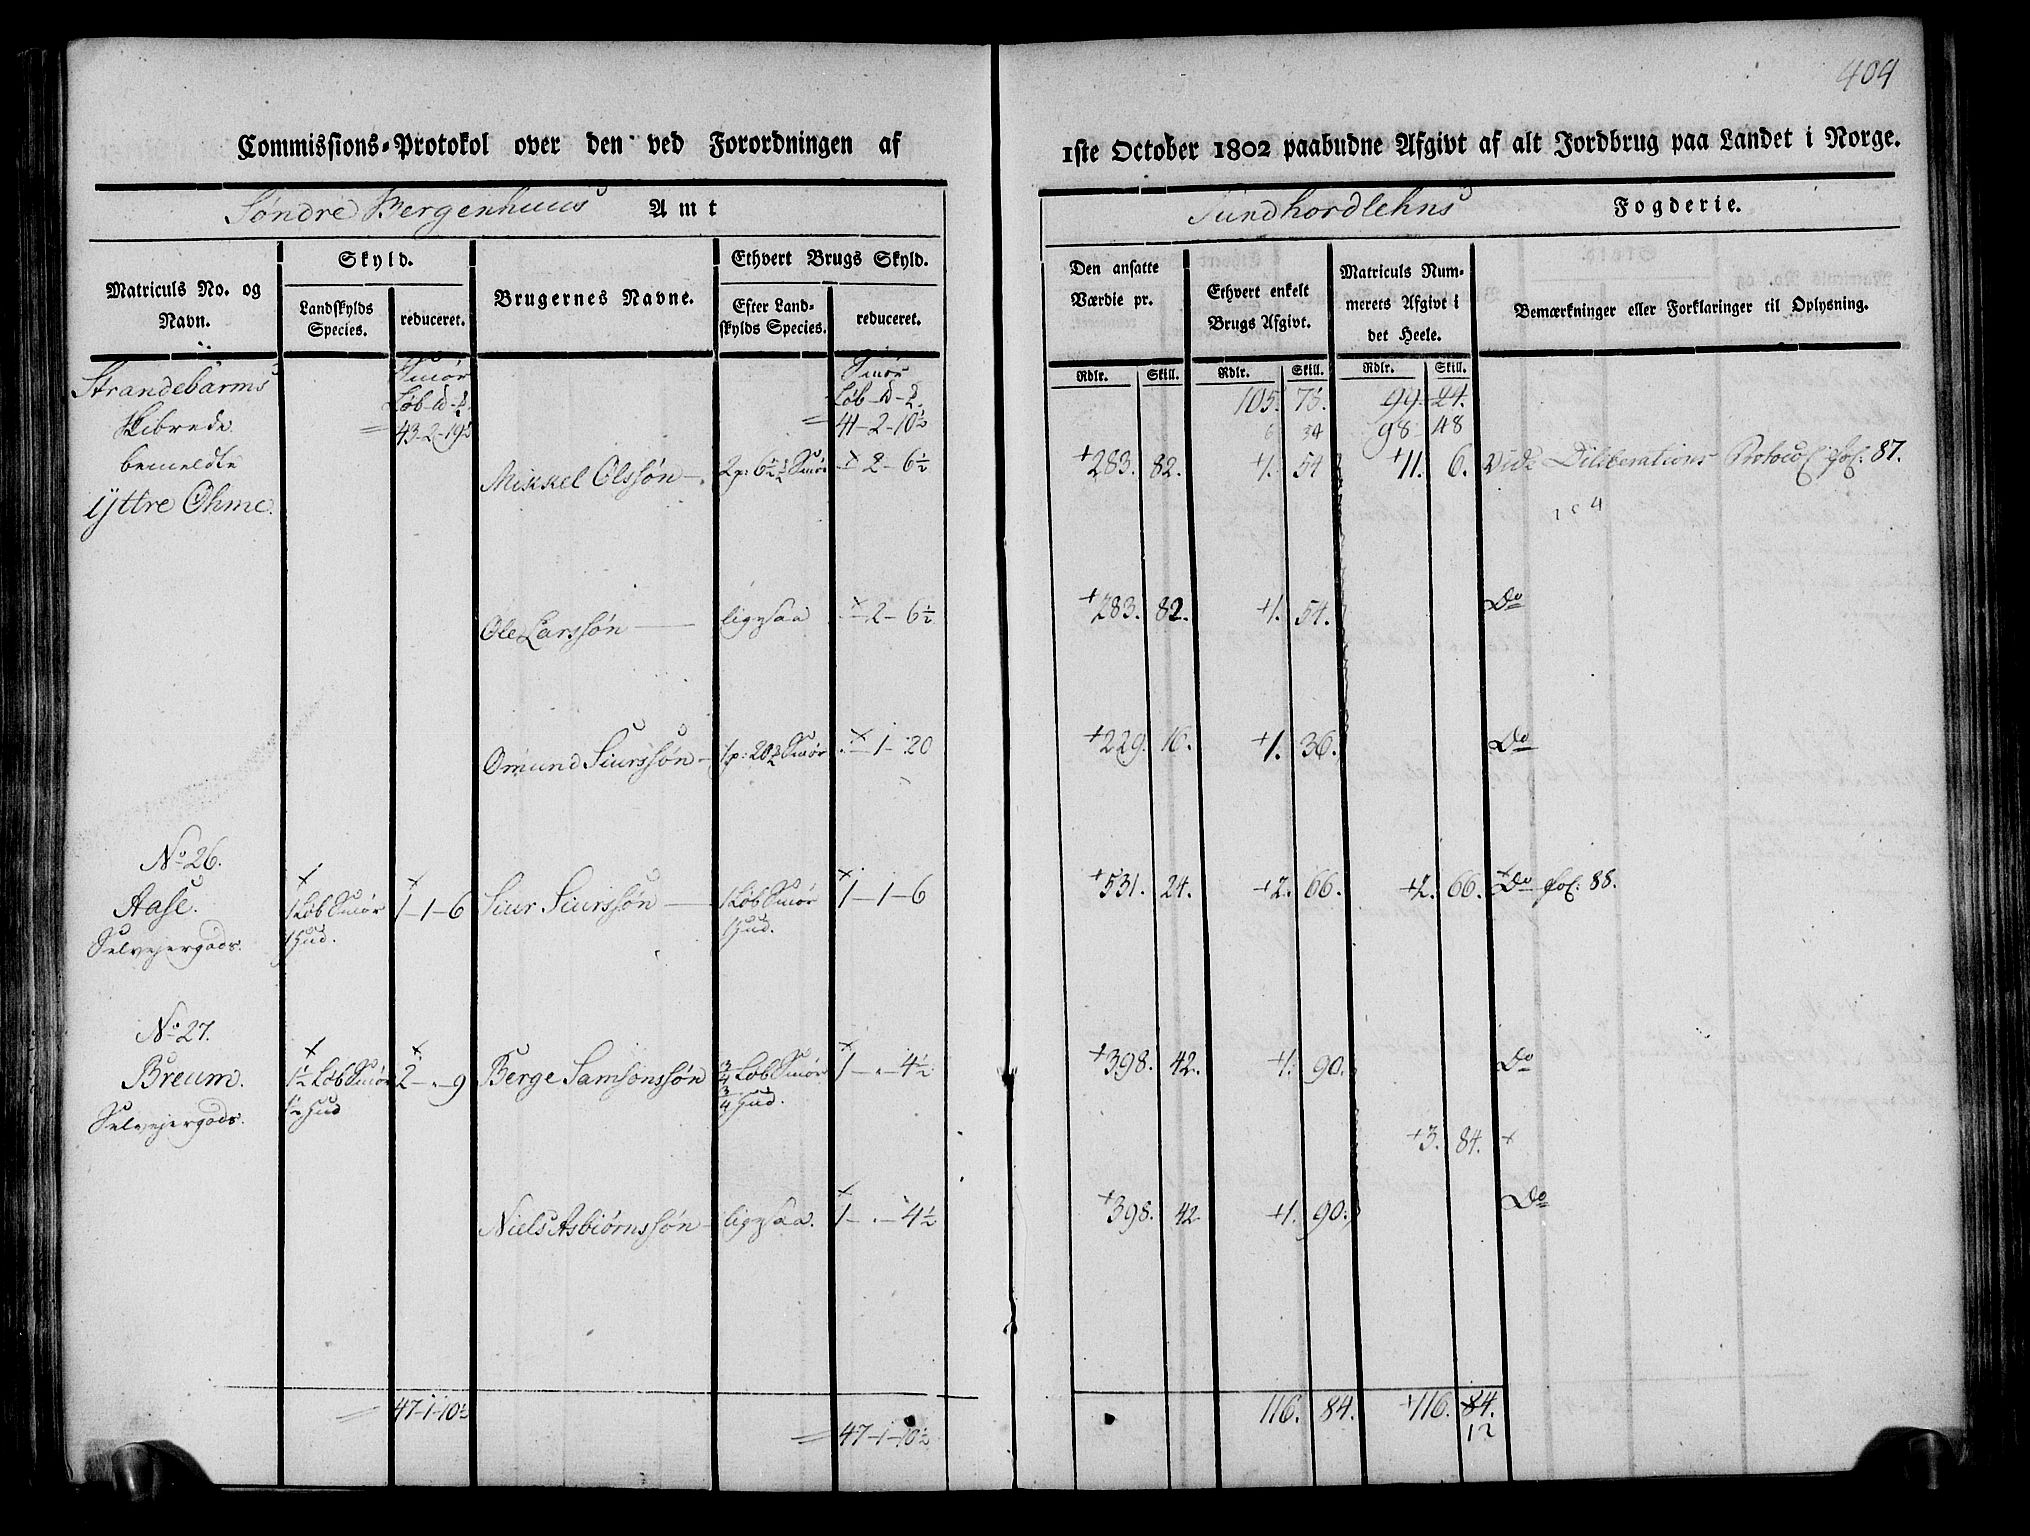 404
Commissions-Protokol over den ved Forordningen af 1ste October 1802 paabudne Afgivt af alt Jordbrug paa Landet i Norge.
Søndre Bergenhuus Amt Sundhordlehns Fogderie.
Matriculs No. og Navn.
Skyld.
Landskylds Species.
reduceret.
Brugernes Navne.
Ethvert Brugs Skyld.
Efter Landskylds Species.
reduceret.
Den ansatte Værdie pr.
Ethvert enkelt Brugs Afgivt.
Matriculs Nummerets Afgivt i det Heele.
Bemærkninger eller Forklaringer til Oplysning.
Rdlr. Skill. Rdlr. Skill. Rdlr. Skill.
Strandebarms Smør Smør
Løb Løb 105. 75. 99. 24.
Skibrede 43-2-19½ 41-2-10½ 98-48
bemeldte Mikkel Olssøn 2p: 6½ Smør 2-6½ +283. 82. +1. 54 +11. 6. Vide Deliberations Protocol fol: 87.
Yttre Ohme.
Ole Larssøn ligesaa 2-6½ +283. 82. +1. 54. Do
Omund Siurssøn 1p: 20½ Smør 1-20 +229. 16. +1. 36. Do
No 26.
Aase. 1 Løb Smør 1-1-6 Siur Siurssøn 1 Løb Smør 1-1-6 +531. 24. +2. 66. +2. 66. Do fol: 88.
Selvejergods. 1 Hud. 1 Hud.
No 27.
Breum. 1½ Løb Smør 2-.-9 Berge Samsonssøn ¾ Løb Smør 1-.-4½ +398. 42. +1. 90. Do
Selvejergods. 1½ Hud ¾ Hud.
+3. 84. +
Niels Asbiørnssøn ligesaa. 1-.-4½ +398. 42. +1. 90. Do
47-1-10½ 116. 84. +116. 84.
47-1-10½ 12